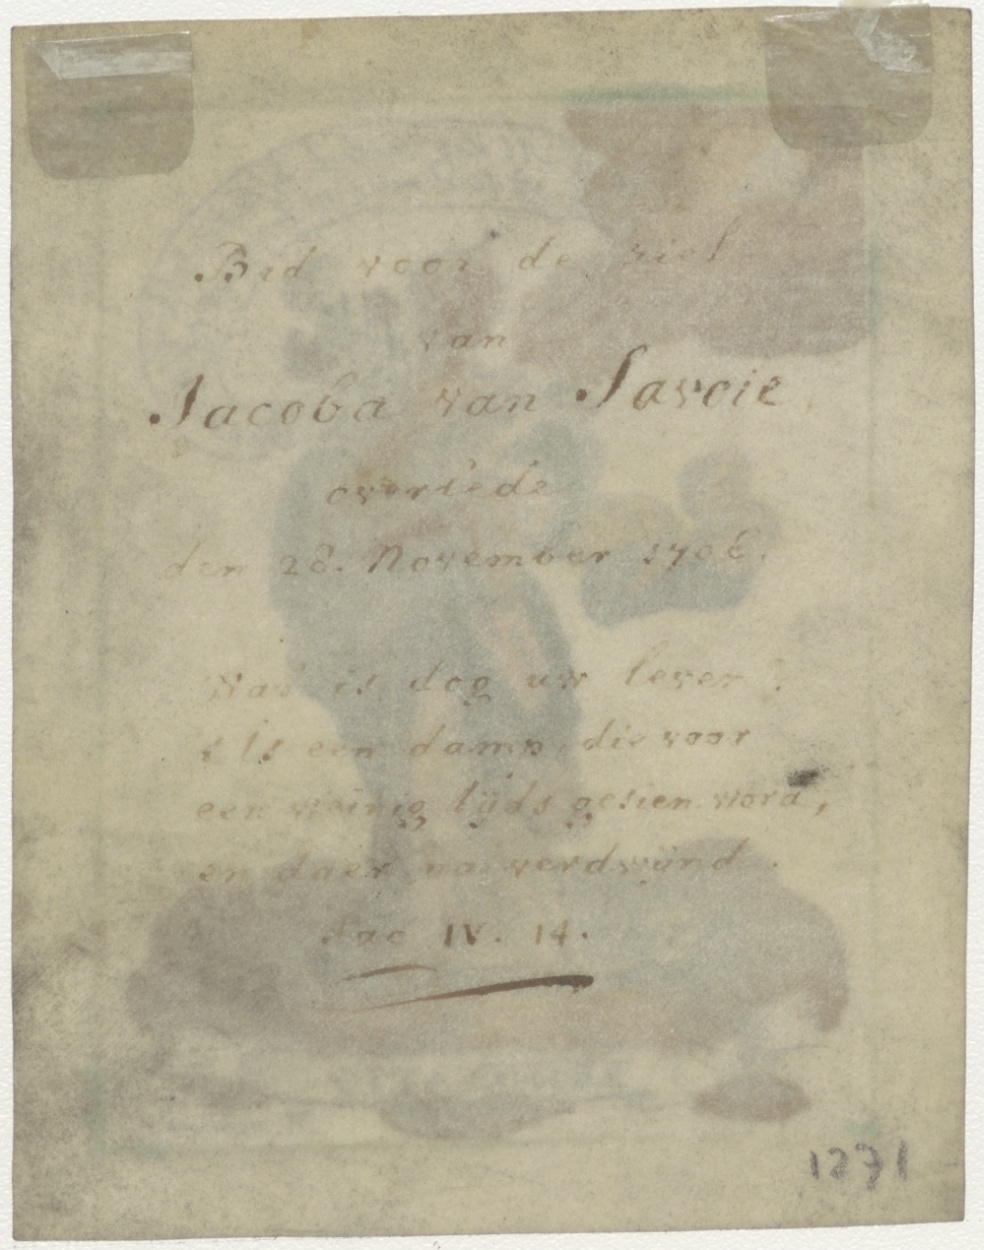 Bid voor de siel
van
Jacoba van Savoie
overlede
den 28. November 1706.
Wat is dog uw leven?
Als een damp die voor
een weinig tijds gesien word,
en daer na verdwijnd.
Jac IV. 14.